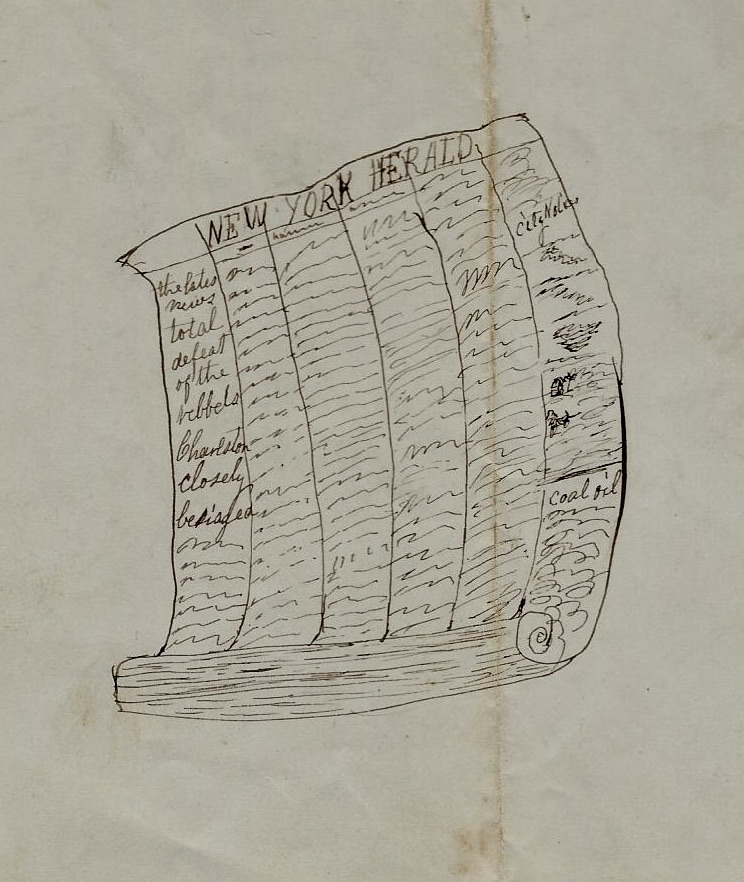 NEW YORK HERALD
the lates
news
total
defeat
of the
rebbels
Charlston
closely
besiaged
City Notes
coal oil